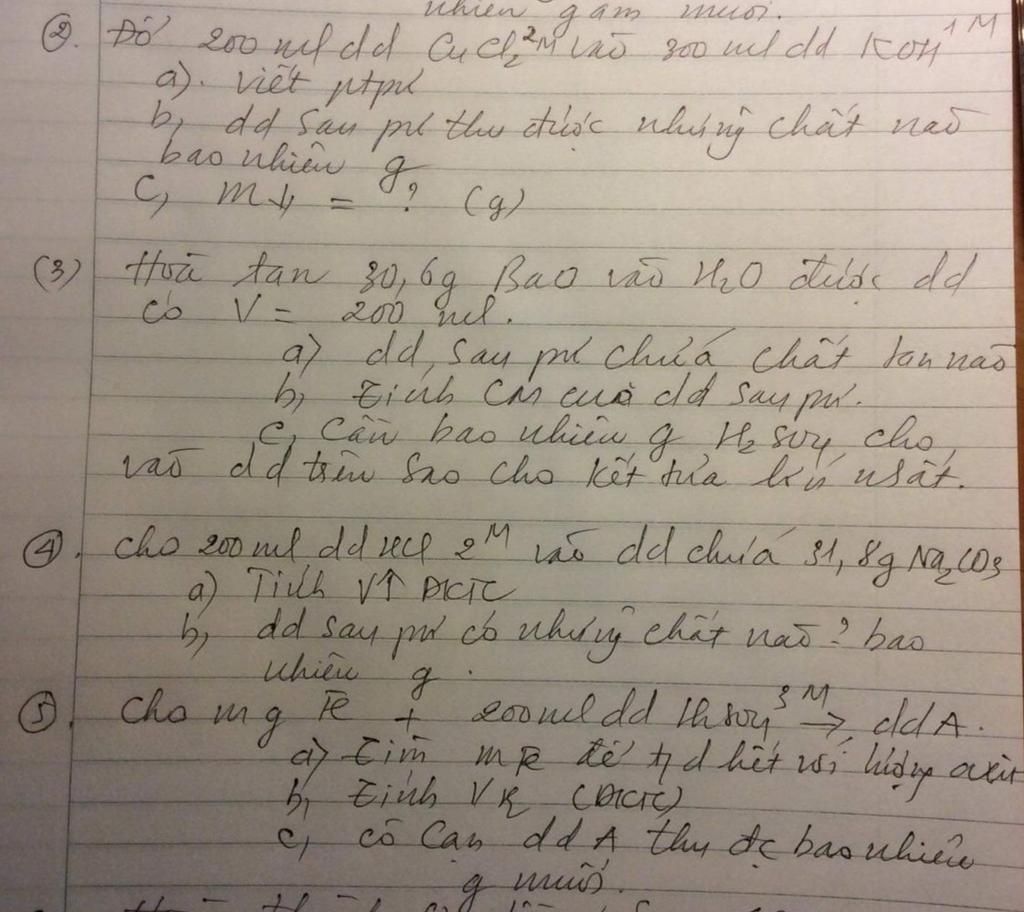 nhiên gam muối.
②. Đổ 200 ml dd CuCl₂ 2M vào 300 ml dd KOH 1M
a). Viết ptpư
b, dd sau pư thu được những chất nào
bao nhiêu g
c, m↓ = ? (g)
(3) Hoà tan 30,6g BaO vào H₂O được dd
có V = 200 ml.
a) dd, sau pư chứa chất tan nào
b, Tính CM của dd sau pư.
c, Cần bao nhiêu g H₂SO₄ cho,
vào dd trên sao cho kết tủa lớn nhất.
④. Cho 200 ml dd HCl 2M vào dd chứa 31,8g Na₂CO₃
a) Tính V↑ ĐKTC
b, dd sau pư có những chất nào? bao
nhiêu g.
⑤. Cho m g Fe + 200 ml dd H₂SO₄ 3M → dd A.
a) Tìm m Fe để t/d hết với lượng axit
b, Tính V K (ĐKTC)
c, cô cạn dd A thu đc bao nhiêu
g muối.